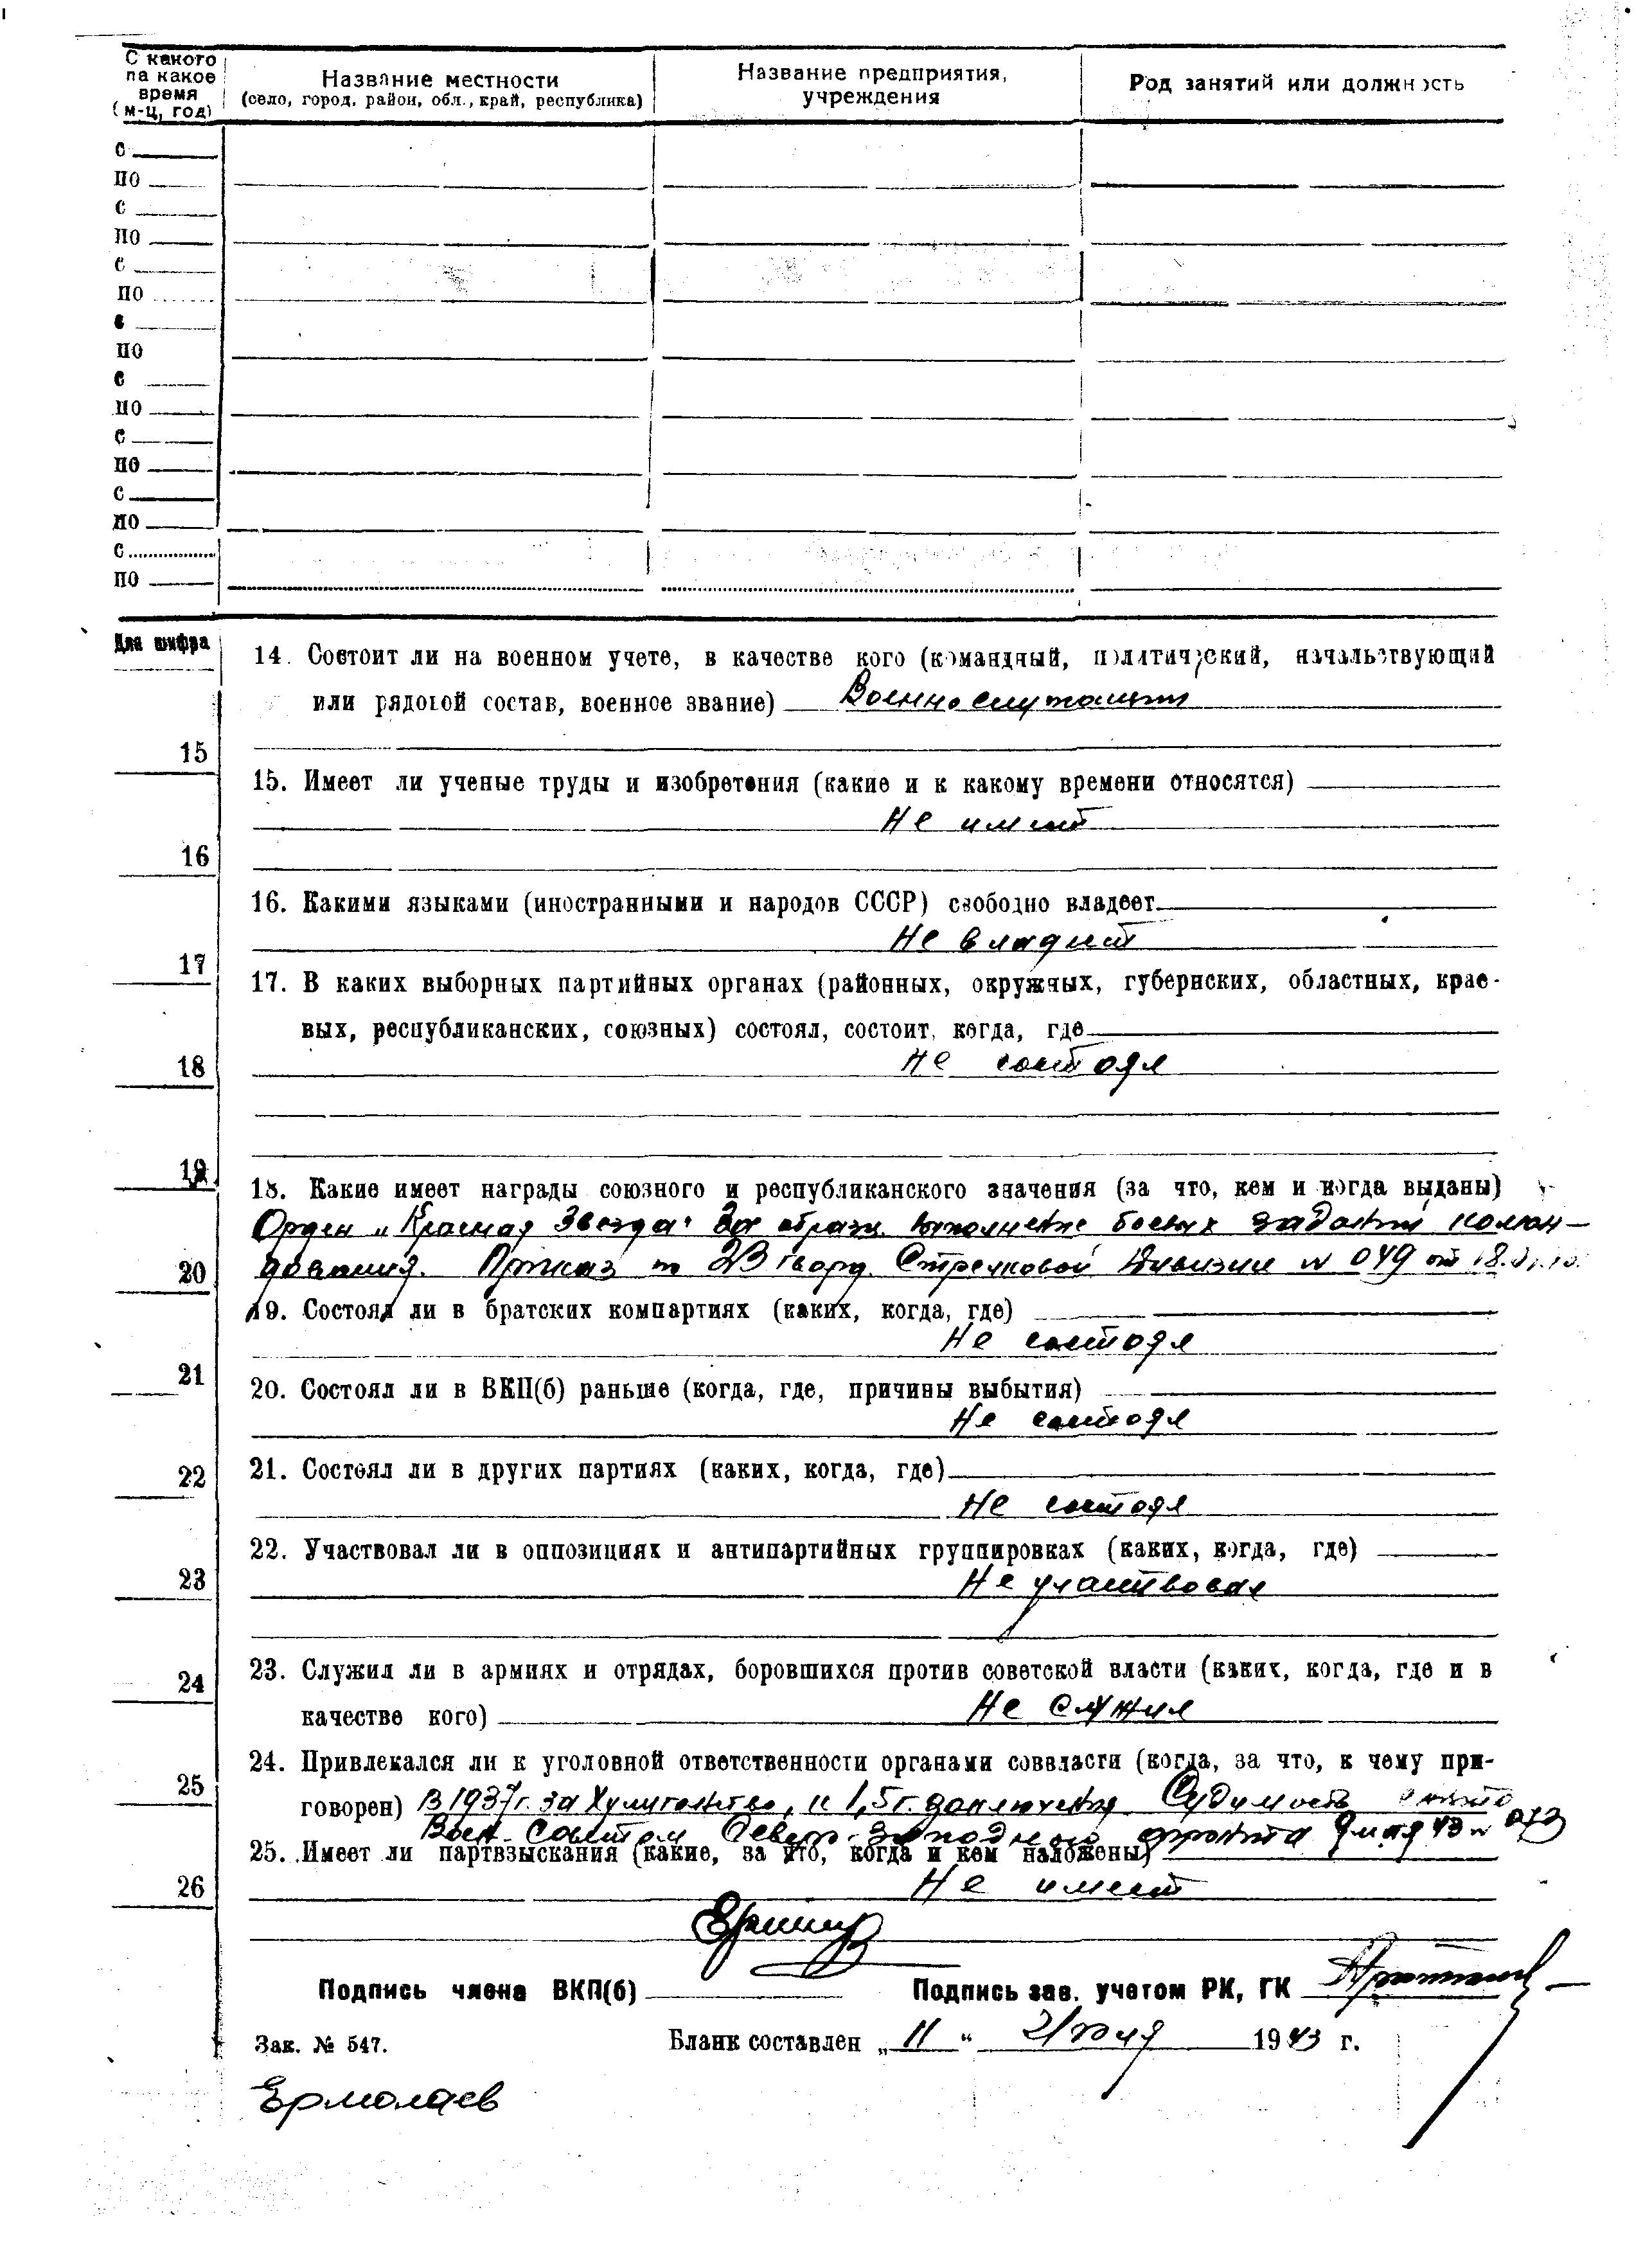 С какого
па какое
время
(м-ц, год)
Название местности
(село, город, район, обл., край, республика)
Название предприятия,
учреждения
Род занятий или должность
с
по
с
по
с
по
с
по
с
по
с
по
с
по
с
по
Для шифра
14. Состоит ли на военном учете, в качестве кого (командный, политический, начальствующий
или рядовой состав, военное звание) Военнослужащий
15
15. Имеет ли ученые труды и изобретения (какие и к какому времени относятся)
Не имеет
16
16. Какими языками (иностранными и народов СССР) свободно владеет
Не владеет
17
17. В каких выборных партийных органах (районных, окружных, губернских, областных, крае-
вых, республиканских, союзных) состоял, состоит, когда, где
Не состоял
18
19
18. Какие имеет награды союзного и республиканского значения (за что, кем и когда выданы)
Орден „Красная Звезда" За образц. выполнение боевых заданий коман-
дования. Приказ по 23 гвард. Стрелковой Дивизии N 049 от 18.
20
19. Состоял ли в братских компартиях (каких, когда, где)
Не состоял
21
20. Состоял ли в ВКП(б) раньше (когда, где, причины выбытия)
Не состоял
22
21. Состоял ли в других партиях (каких, когда, где)
Не состоял
22. Участвовал ли в оппозициях и антипартийных группировках (каких, когда, где)
23
Не участвовал
23. Служил ли в армиях и отрядах, боровшихся против советской власти (каких, когда, где и в
24
качестве кого) Не служил
24. Привлекался ли к уголовной ответственности органами соввласти (когда, за что, к чему при-
25
говорен) В 1937г. за Хулиганство, к 1,5 г. заключения Судимость снята
Воен. Советом Северо-Западного фронта 9 мая 43 N 073
25. Имеет ли партвзыскания (какие, за что, когда и кем наложены)
26
Не имеет
Подпись члена ВКП(б)
Подпись зав. учетом РК, ГК
Зак. № 547.
Бланк составлен „11" 1943 г.
Ермолаев